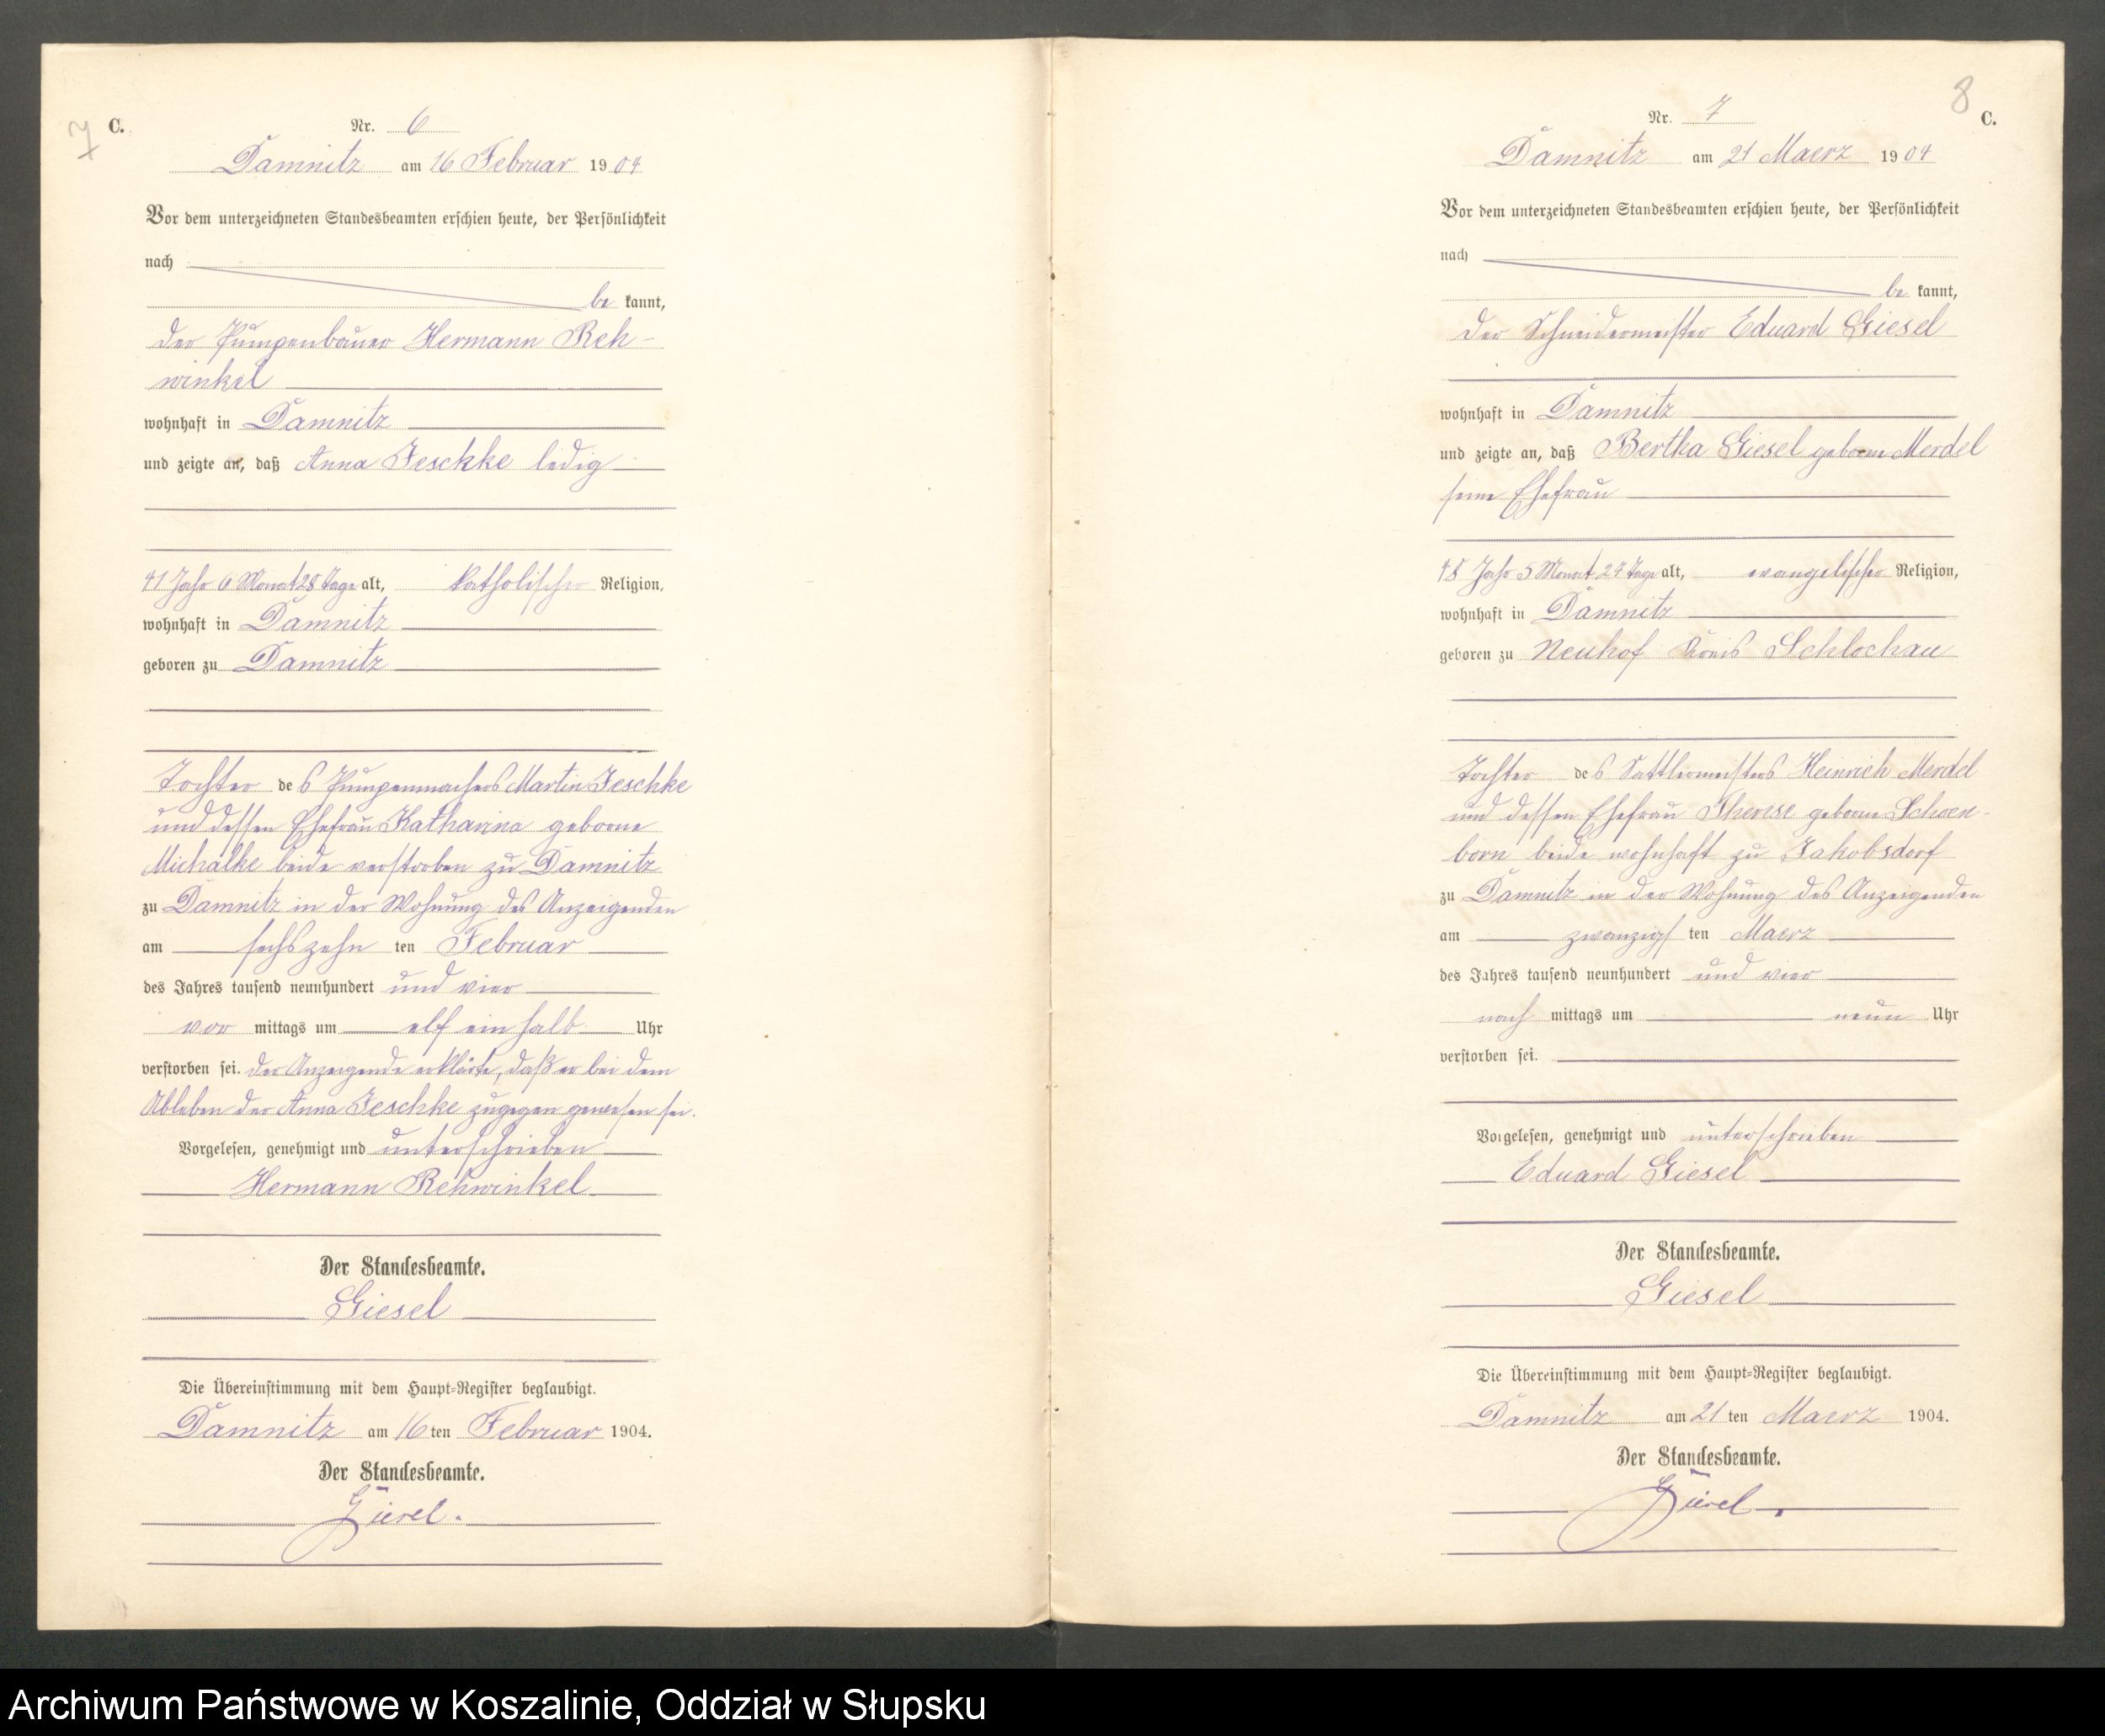 7 C.
Nr. 6
Damnitz am 16 Februar 1904
Vor dem unterzeichneten Standesbeamten erschien heute, der Persönlichkeit
nach
be kannt,
der Pumpenbauer Hermann Reh-
winkel
wohnhaft in Damnitz
und zeigte an, daß Anna Jeschke ledig
41 Jahr 6 Monat 28 Tage alt, katholischer Religion,
wohnhaft in Damnitz
geboren zu Damnitz
Tochter des Pumpenmachers Martin Jeschke
und dessen Ehefrau Katharina geborne
Michalke beide verstorben zu Damnitz
zu Damnitz in der Wohnung des Anzeigenden
am sechszehn ten Februar
des Jahres tausend neunhundert und vier
vor mittags um elf ein halb Uhr
verstorben sei. Der Anzeigende erklärte, daß er bei dem
Ableben der Anna Jeschke zugegen gewesen sei.
Vorgelesen, genehmigt und unterschrieben
Hermann Rehwinkel
Der Standesbeamte.
Giesel
Die Übereinstimmung mit dem Haupt-Register beglaubigt.
Damnitz am 16 ten Februar 1904.
Der Standesbeamte.
Giesel.
8 C.
Nr. 7
Damnitz am 21 Maerz 1904
Vor dem unterzeichneten Standesbeamten erschien heute, der Persönlichkeit
nach
be kannt,
der Schneidermeister Eduard Giesel
wohnhaft in Damnitz
und zeigte an, daß Bertha Giesel geborne Merdel
seine Ehefrau
48 Jahr 5 Monat 24 Tage alt, evangelischer Religion,
wohnhaft in Damnitz
geboren zu Neuhof Kreis Schlochau
Tochter des Sattlermeisters Heinrich Merdel
und dessen Ehefrau Therese geborne Schoen-
born beide wohnhaft zu Jakobsdorf
zu Damnitz in der Wohnung des Anzeigenden
am zwanzigs ten Maerz
des Jahres tausend neunhundert und vier
nach mittags um neun Uhr
verstorben sei.
Vorgelesen, genehmigt und unterschrieben
Eduard Giesel
Der Standesbeamte.
Giesel
Die Übereinstimmung mit dem Haupt-Register beglaubigt.
Damnitz am 21 ten Maerz 1904.
Der Standesbeamte.
Giesel.
Archiwum Państwowe w Koszalinie, Oddział w Słupsku